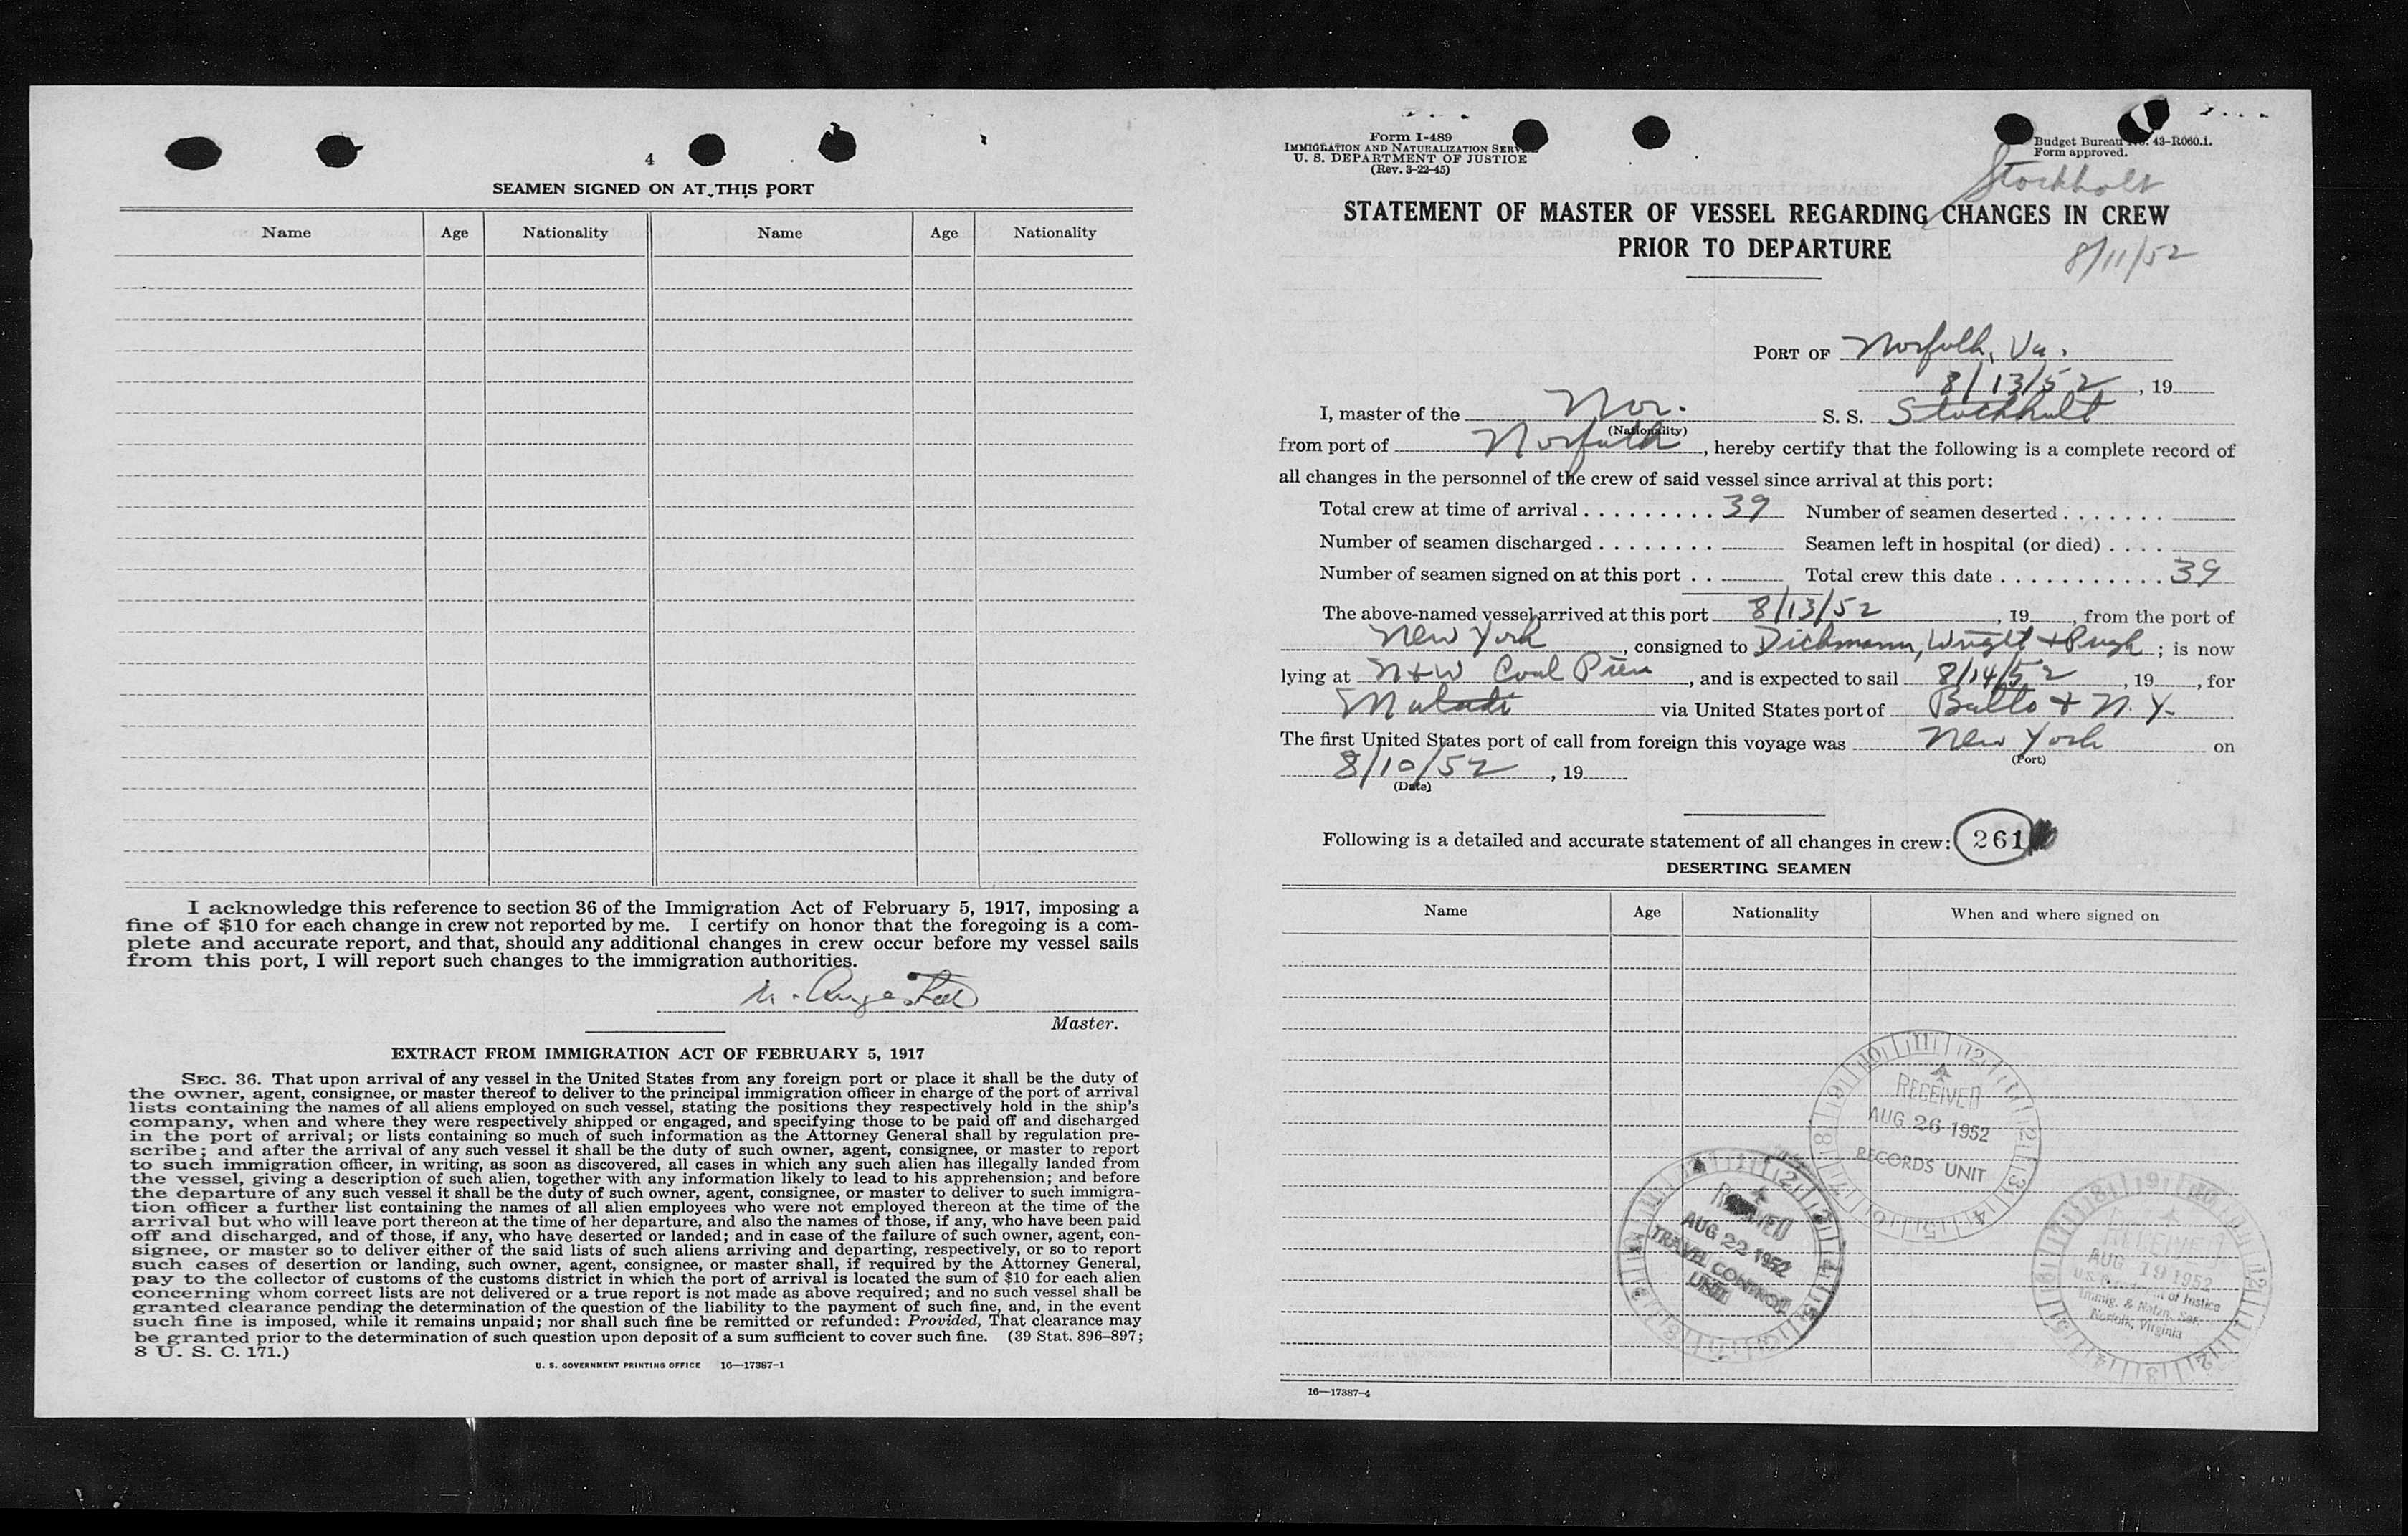 4
SEAMEN SIGNED ON AT THIS PORT
Name Age Nationality Name Age Nationality
I acknowledge this reference to section 36 of the Immigration Act of February 5, 1917, imposing a
fine of $10 for each change in crew not reported by me. I certify on honor that the foregoing is a com-
plete and accurate report, and that, should any additional changes in crew occur before my vessel sails
from this port, I will report such changes to the immigration authorities.
Master.
EXTRACT FROM IMMIGRATION ACT OF FEBRUARY 5, 1917
SEC. 36. That upon arrival of any vessel in the United States from any foreign port or place it shall be the duty of
the owner, agent, consignee, or master thereof to deliver to the principal immigration officer in charge of the port of arrival
lists containing the names of all aliens employed on such vessel, stating the positions they respectively hold in the ship's
company, when and where they were respectively shipped or engaged, and specifying those to be paid off and discharged
in the port of arrival; or lists containing so much of such information as the Attorney General shall by regulation pre-
scribe; and after the arrival of any such vessel it shall be the duty of such owner, agent, consignee, or master to report
to such immigration officer, in writing, as soon as discovered, all cases in which any such alien has illegally landed from
the vessel, giving a description of such alien, together with any information likely to lead to his apprehension; and before
the departure of any such vessel it shall be the duty of such owner, agent, consignee, or master to deliver to such immigra-
tion officer a further list containing the names of all alien employees who were not employed thereon at the time of the
arrival but who will leave port thereon at the time of her departure, and also the names of those, if any, who have been paid
off and discharged, and of those, if any, who have deserted or landed; and in case of the failure of such owner, agent, con-
signee, or master so to deliver either of the said lists of such aliens arriving and departing, respectively, or so to report
such cases of desertion or landing, such owner, agent, consignee, or master shall, if required by the Attorney General,
pay to the collector of customs of the customs district in which the port of arrival is located the sum of $10 for each alien
concerning whom correct lists are not delivered or a true report is not made as above required; and no such vessel shall be
granted clearance pending the determination of the question of the liability to the payment of such fine, and, in the event
such fine is imposed, while it remains unpaid; nor shall such fine be remitted or refunded: Provided, That clearance may
be granted prior to the determination of such question upon deposit of a sum sufficient to cover such fine. (39 Stat. 896-897;
8 U. S. C. 171.)
U. S. GOVERNMENT PRINTING OFFICE 16—17387-1
Form I-489
IMMIGRATION AND NATURALIZATION SERVICE
U. S. DEPARTMENT OF JUSTICE
(Rev. 3-22-45)
Budget Bureau No. 43-R060.1.
Form approved.
Stockholt
STATEMENT OF MASTER OF VESSEL REGARDING CHANGES IN CREW
PRIOR TO DEPARTURE
8/11/52
PORT OF Norfolk, Va.
8/13/52, 19
I, master of the Nor. S. S. Stockhult
(Nationality)
from port of Norfolk, hereby certify that the following is a complete record of
all changes in the personnel of the crew of said vessel since arrival at this port:
Total crew at time of arrival 39 Number of seamen deserted
Number of seamen discharged Seamen left in hospital (or died)
Number of seamen signed on at this port Total crew this date 39
The above-named vessel arrived at this port 8/13/52, 19, from the port of
New York, consigned to Dichmann, Wright + Pugh; is now
lying at N+W Coal Pier, and is expected to sail 8/14/52, 19, for
Matadi via United States port of Balto + N.Y.
The first United States port of call from foreign this voyage was New York on
(Port)
8/10/52, 19
(Date)
Following is a detailed and accurate statement of all changes in crew: 261
DESERTING SEAMEN
Name Age Nationality When and where signed on
RECEIVED
AUG 26 1952
RECORDS UNIT
RECEIVED
AUG 22 1952
TRAVEL CONTROL
UNIT
RECEIVED
AUG 19 1952
U.S. Department of Justice
Immig. & Natzn. Ser.
Norfolk, Virginia
16—17387-4